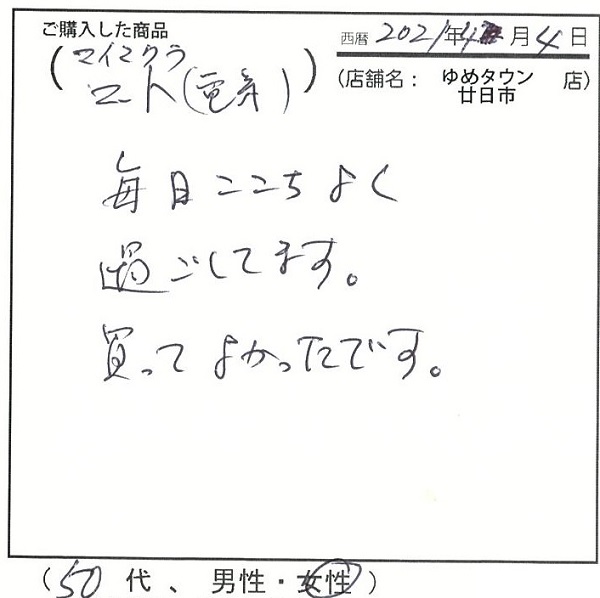 ご購入した商品
西暦 2021年4月4日
(マイマクラ
マット(電気))
(店舗名： ゆめタウン 廿日市 店)
毎日ここちよく
過ごしてます。
買ってよかったです。
(50代、男性・女性)